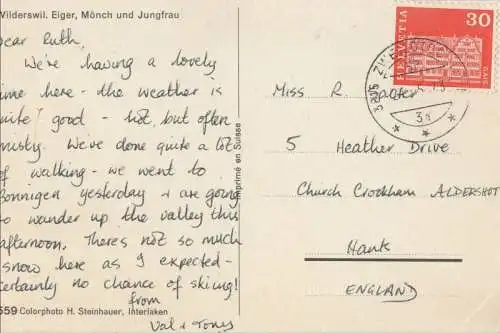 Wilderswil. Eiger, Mönch und Jungfrau
Dear Ruth,
We're having a lovely
time here - the weather is
quite good - hot, but often
misty. We've done quite a lot
of walking - we went to
Bönnigen yesterday + are going
to wander up the valley this
afternoon. There's not so much
snow here as I expected -
certainly no chance of skiing!
from
Val + Tony
559 Colorphoto H. Steinhauer, Interlaken
Imprimé en Suisse
HELVETIA
30
3805
3a
Miss R.
5 Heather Drive
Church Crookham ALDERSHOT
Hants
ENGLAND